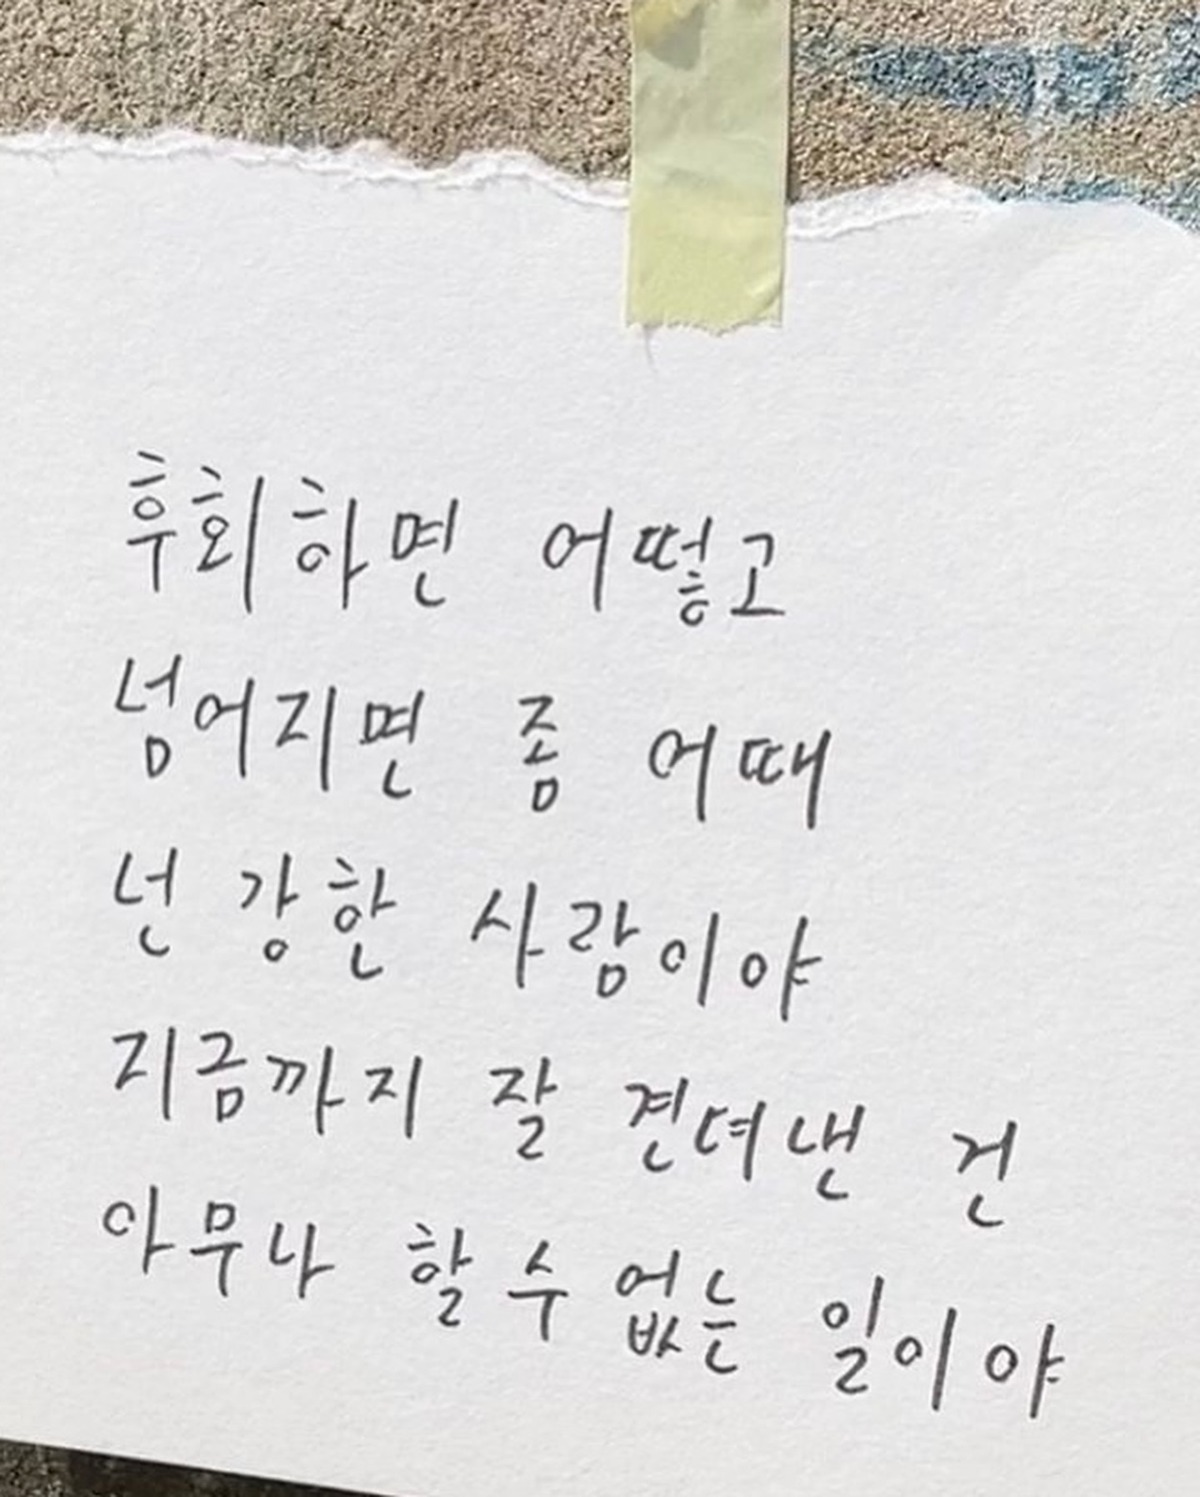 후회하면 어떻고
넘어지면 좀 어때
넌 강한 사람이야
지금까지 잘 견뎌낸 건
아무나 할 수 없는 일이야